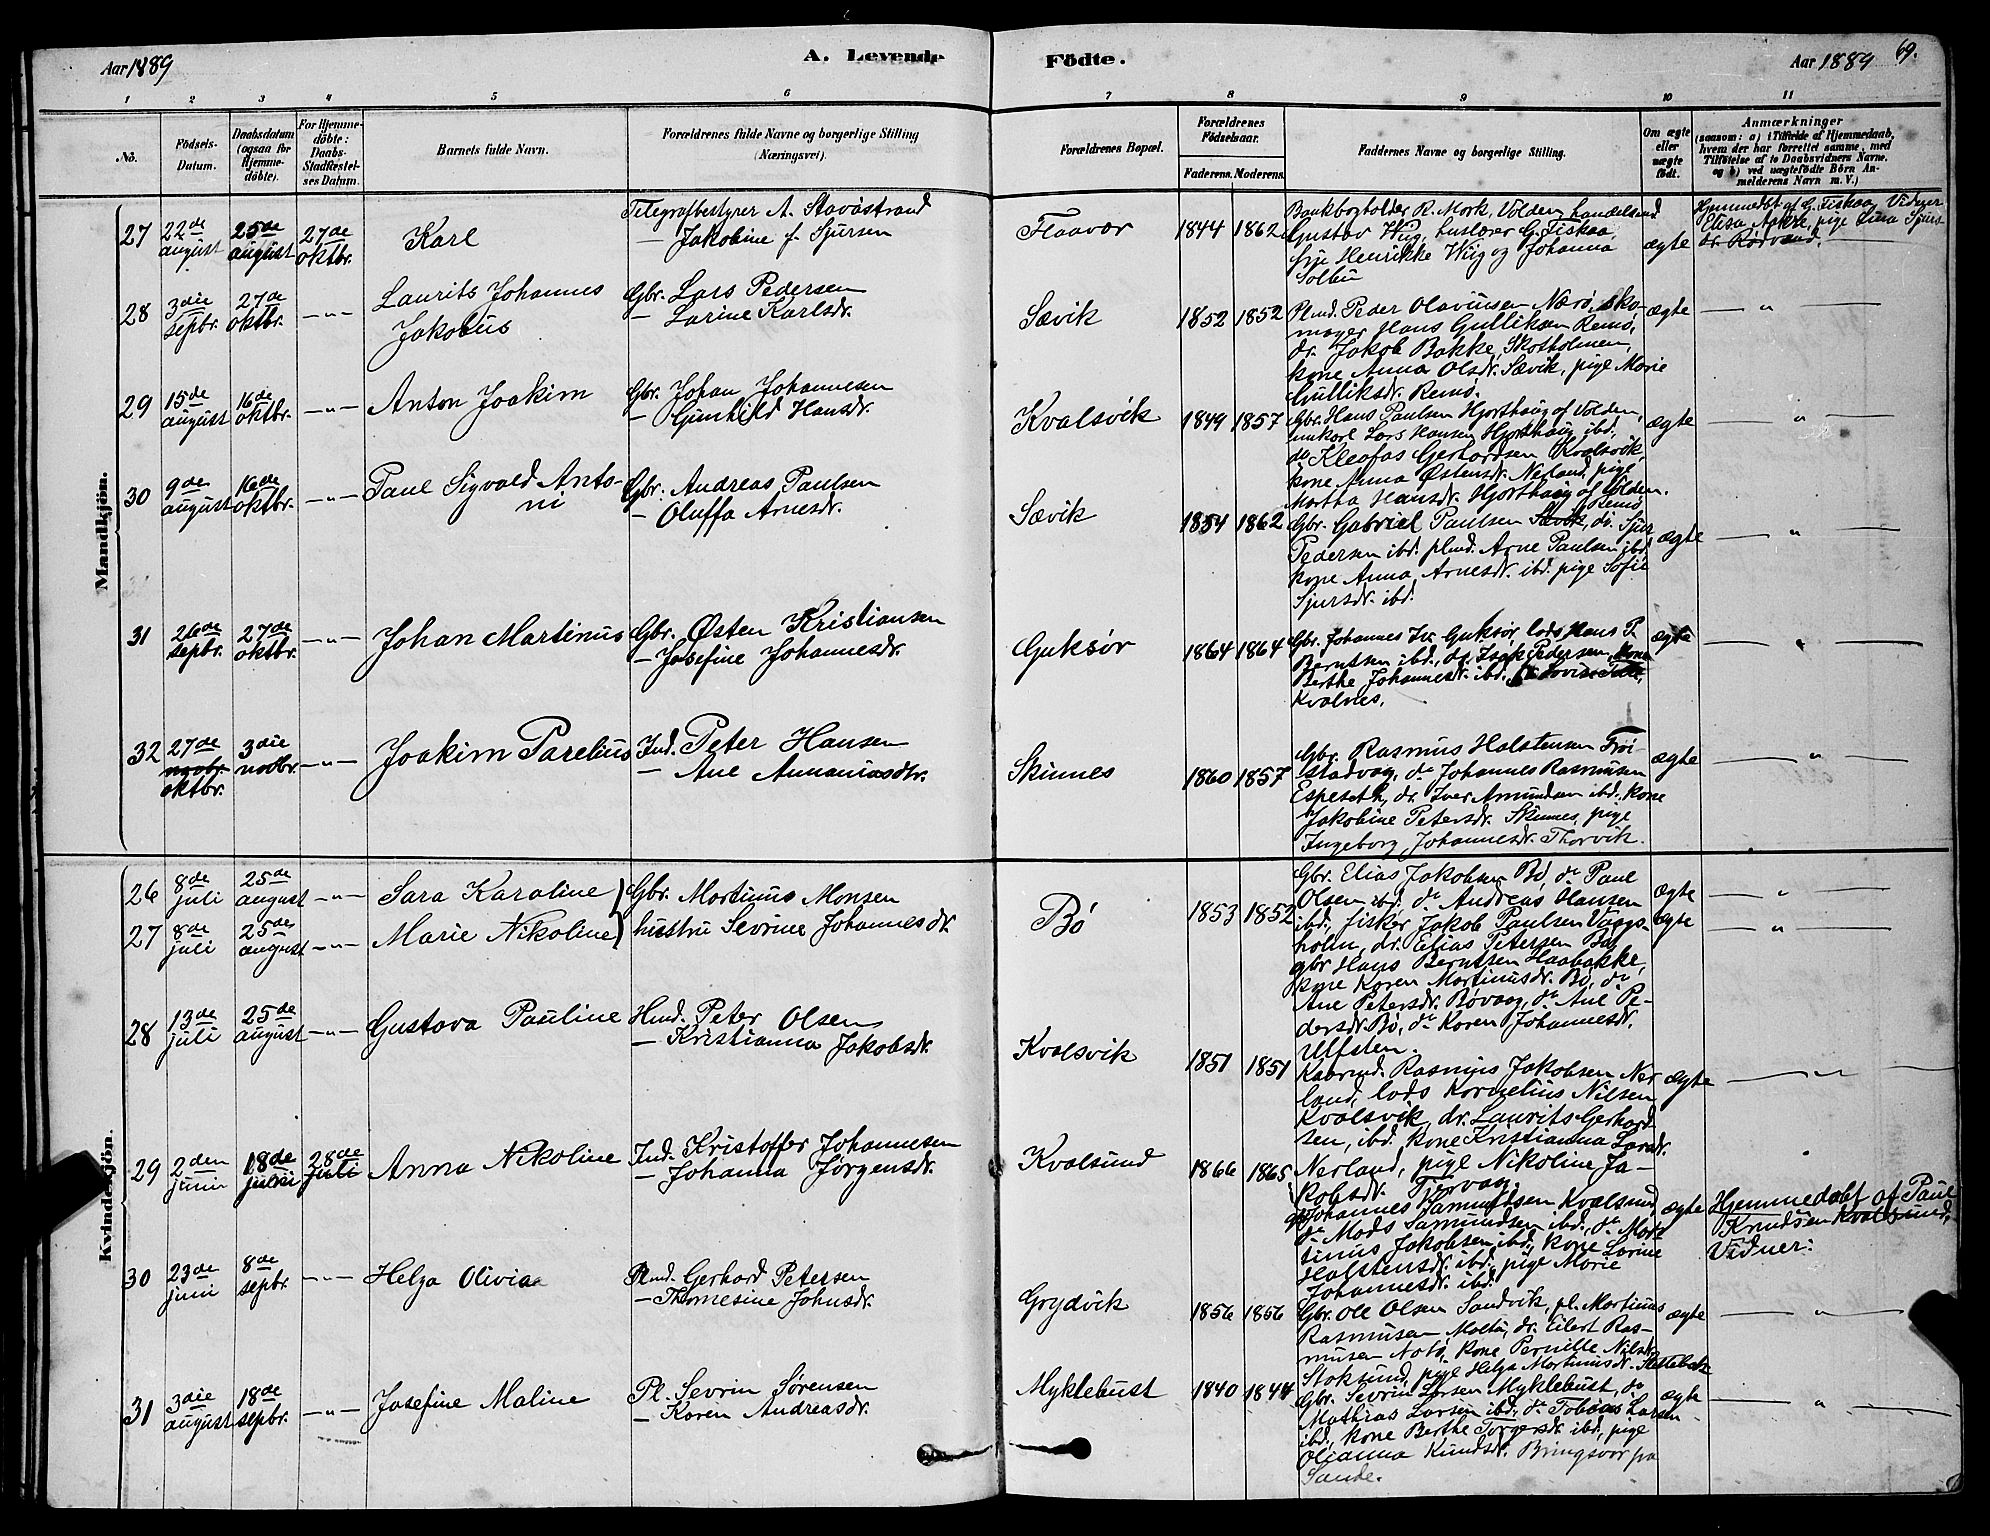 Aar 1889
A. Levende
Födte.
Aar 1889
69.
1 2 3 4 5 6 7 8 9 10 11
No.
Födsels-
Datum.
Daabsdatum
(ogsaa for
Hjemme-
döbte).
For Hjemme-
döbte:
Daabs-
Stadfæstel-
ses Datum.
Barnets fulde Navn.
Forældrenes fulde Navne og borgerlige Stilling
(Næringsvei).
Forældrenes Bopæl.
Forældrenes
Födselsaar.
Faderens. Moderens.
Faddernes Navne og borgerlige Stilling.
Om ægte
eller
uægte
født.
Anmærkninger
(saasom: a) i Tilfælde af Hjemmedaab,
hvem der har forrettet samme, med
Tilföielse af to Daabsvidners Navne,
og b) ved uægtefödte Börn An-
melderens Navn m. V.)
Mandkjön.
27 22de august 25de august 27de oktbr. Karl
Telegrafbestyrer A. Stavöstrand
— Jakobine f. Sjursen
Flaavær 1844 1862
Bankbogholder R. Mork, Volden, handelsmd
Gustav Wiig, huslærer G. Fiskaa
Henrikke Wiig og Johanna
Solbu
ægte
Hjemmedøbt af G. Fiskaa, Vidner
Elisa Aakre, pige Lina Sjurs-
dr. Rødvand.
28 3die septbr. 27de oktbr. —"— Laurits Johannes
Jakobus
Gbr. Lars Pedersen
— Larine Karlsdr.
Sævik 1852 1852
Plmd. Peder Olavüsen Nærø, sko-
mager Hans Gulliksen Remø,
dr. Jakob Bakke, Skotholmen,
kone Anna Olsdr. Sævik, pige Marie
Gulliksdr. Remø.
ægte —"—
29 15de august 16de oktbr. —"— Anton Joakim
Gbr. Johan Johannesen
— Gunhild Hansdr.
Kvalsvik 1849 1857
Gbr. Hans Paulsen Hjorthaug af Volden,
unkarl Lars Hansen Hjorthaug ibd.
do Kleofas Gerhardsen Kvalsvik,
kone Anna Østensdr. Nerland, pige
Martha Hansdr. Hjorthaug af Volden.
ægte —"—
30 9de august 16de oktbr. —"— Paul Sigvald Anto-
ni
Gbr. Andreas Paulsen
— Oluffa Arnesdr.
Sævik 1854 1862
Remø
Gbr. Gabriel Paulsen Sævik, dr. Sjur
Pedersen ibd. plmd. Arne Paulsen ibd.
kone Anna Arnesdr. ibd. pige Sofie
Sjursdr. ibd.
ægte —"—
31 26de septbr. 27de oktbr. —"— Johan Martinus
Gbr. Østen Kristiansen
— Josefine Johannesdr.
Guksør 1864 1864
Gbr. Johannes Guksør, lods Hans P.
Berntsen ibd., dr. Isak Pedersen, kone
Berthe Johannesdr. ibd.
Kvalnes.
ægte —"—
32 27de novbr. oktbr. 3die novbr. —"— Joakim Parelius
Ind. Peter Hansen
— Ane Annaniasdtr.
Skinnes 1860 1857
Gbr. Rasmus Halstensen Frøi-
stadvaag, do Johannes Rasmusen
Espeseth, dr. Iver Amundsen ibd., kone
Jakobine Petersdr. Skinnes, pige
Ingeborg Johannesdr. Thorvik.
ægte —"—
Kvindekjön.
26 8de juli 25de august —"— Sara Karoline
27 8de juli 25de august —"— Marie Nikoline
Gbr. Martinus Monsen
hustru Sevrine Johannesdr.
Bø 1853 1852
Gbr. Elias Jakobsen Bø, do Paul
Olsen ibd. do Andreas Hansen
ibd., fisker Jakob Paulsen Vaags-
holm, dr. Elias Petersen Bø,
gbr. Hans Berntsen Haabakke,
kone Karen Martinusdr. Bø, do
Ane Petersdr. Bøvaag, do Ane Pe-
dersdr. Bø, do Karen Johannesdr.
Ulfsten.
ægte —"—
ægte —"—
28 13de juli 25de august —"— Gustava Pauline
Hmd. Peter Olsen
— Kristianna Jakobsdr.
Kvalsvik 1851 1851
Kaarmd. Rasmus Jakobsen Ner
land, lods Kornelius Nilsen
Kvalsvik, dr. Laurits Gerhard
sen, ibd. kone Kristianna Larsdr.
Nerland, pige Nikoline Ja-
kobsdr. Tjervaag.
ægte —"—
29 2den juni 18de juni 28de juli Anna Nikoline
Ind. Kristoffer Johannesen
— Johanna Jørgensdr.
Kvalsund 1866 1865
Johannes Samundsen Kvalsund
do Mads Samundsen ibd., do Mar-
tinus Jakobsen ibd., kone Larine
Halstensdr. ibd. pige Marie
Johannesdr. ibd.
ægte
Hjemmedøbt af Paul
Knudsen Kvalsund,
Vidner:
30 23de juni 8de septbr. —"— Helga Olivia
Plmd. Gerhard Petersen
— Thomesine Johnsdr.
Grydvik 1856 1856
Gbr. Ole Olsen Sandvik, pl. Martinus
Rasmusen Moltu, dr. Eilert Ras-
musen Notø, kone Pernille Nilsdr.
Stoksund, pige Helga Martinusdr.
ægte —"—
31 3die august 18de septbr. —"— Josefine Maline
Pl. Sevrin Sørensen
— Karen Andreasdr.
Myklebust 1840 1844
Gbr. Sevrin Larsen Myklebust, do
Mathias Larsen ibd. do Tobias Larsen
ibd., kone Berthe Torgersdr. ibd., pige
Olianna Knudsdr. Bringsvor pa
Sande.
ægte —"—